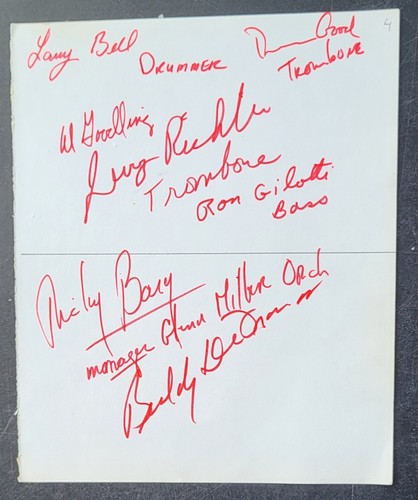 Larry Bell
DRUMMER
Good
TROMBONE
4
Al Goodling
Trombone
Ron Gilotti
Bass
Micky Bary
manager Glenn Miller Orch
Buddy DeFranco